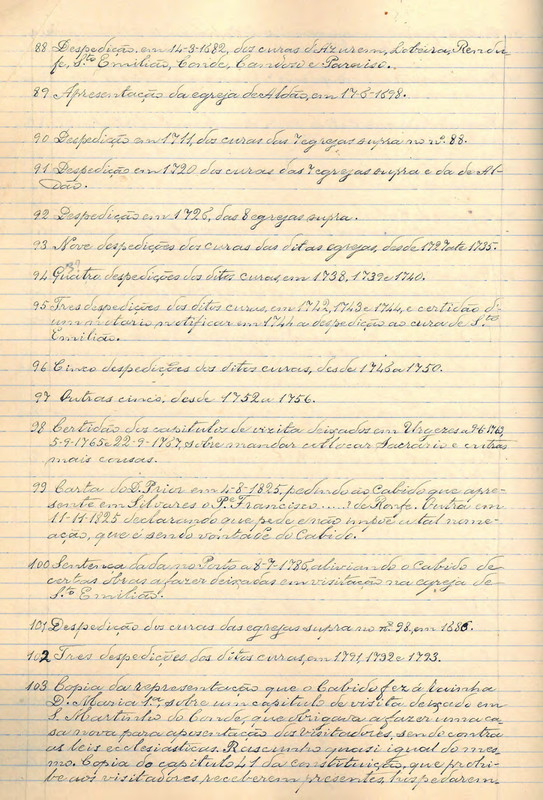 88 Despedição, em 14-3-1682, dos curas de Azurem, Lobeira, Rendu-
fe, S.to Emilião, Conde, Candoso e Paraiso.
89 Apresentação da egreja de Aldão, em 17-6-1698.
90 Despedição em 1711, dos curas das 7 egrejas supra no nº. 88.
91 Despedição em 1720 dos curas das 7 egrejas supra e da de Al-
dão.
92 Despedição em 1726, das 8 egrejas supra.
93 Nove despedições dos curas das ditas egrejas, desde 1727 até 1735.
94 Quatro despedições dos ditos curas, em 1738, 1739 e 1740.
95 Tres despedições dos ditos curas, em 1742, 1743 e 1744, e certidão d'
um notario notificar em 1744 a despedição ao cura de S.to
Emilião.
96 Cinco despedições dos ditos curas, desde 1746 a 1750.
97 Outras cinco, desde 1752 a 1756.
98 Certidão dos capitulos de vizita deixados em Urgezes a 9-6-1762,
5-9-1765 e 22-9-1767, sobre mandar collocar Sacrario e outras
mais cousas.
99 Carta do D. Prior em 4-8-1825, pedindo ao Cabido que apre-
sente em Silvares o P.e Francisco ...... de Ronfe. Outra em
11-11-1825 declarando que pede e não impõe a tal nome-
ação, que é sendo vontade do Cabido.
100 Sentença dada no Porto a 8-7-1786, aliviando o Cabido de
certas obras a fazer deixadas em visitação na egreja de
S.to Emilião.
101 Despedição dos curas das egrejas supra no nº. 98, em 1686.
102 Tres despedições dos ditos curas, em 1791, 1792 e 1793.
103 Copia da representação que o Cabido fez á rainha
D. Maria 1.ª, sobre um capitulo de visita deixado em
S. Martinho do Conde, que obrigava a fazer uma ca-
sa nova para aposentação dos visitadores, sendo contra
as leis ecclesiasticas. Rascunho quasi igual do mes-
mo. Copia do capitulo 41 da constituição, que prohi-
be aos visitadores receberem presentes, hospedarem-